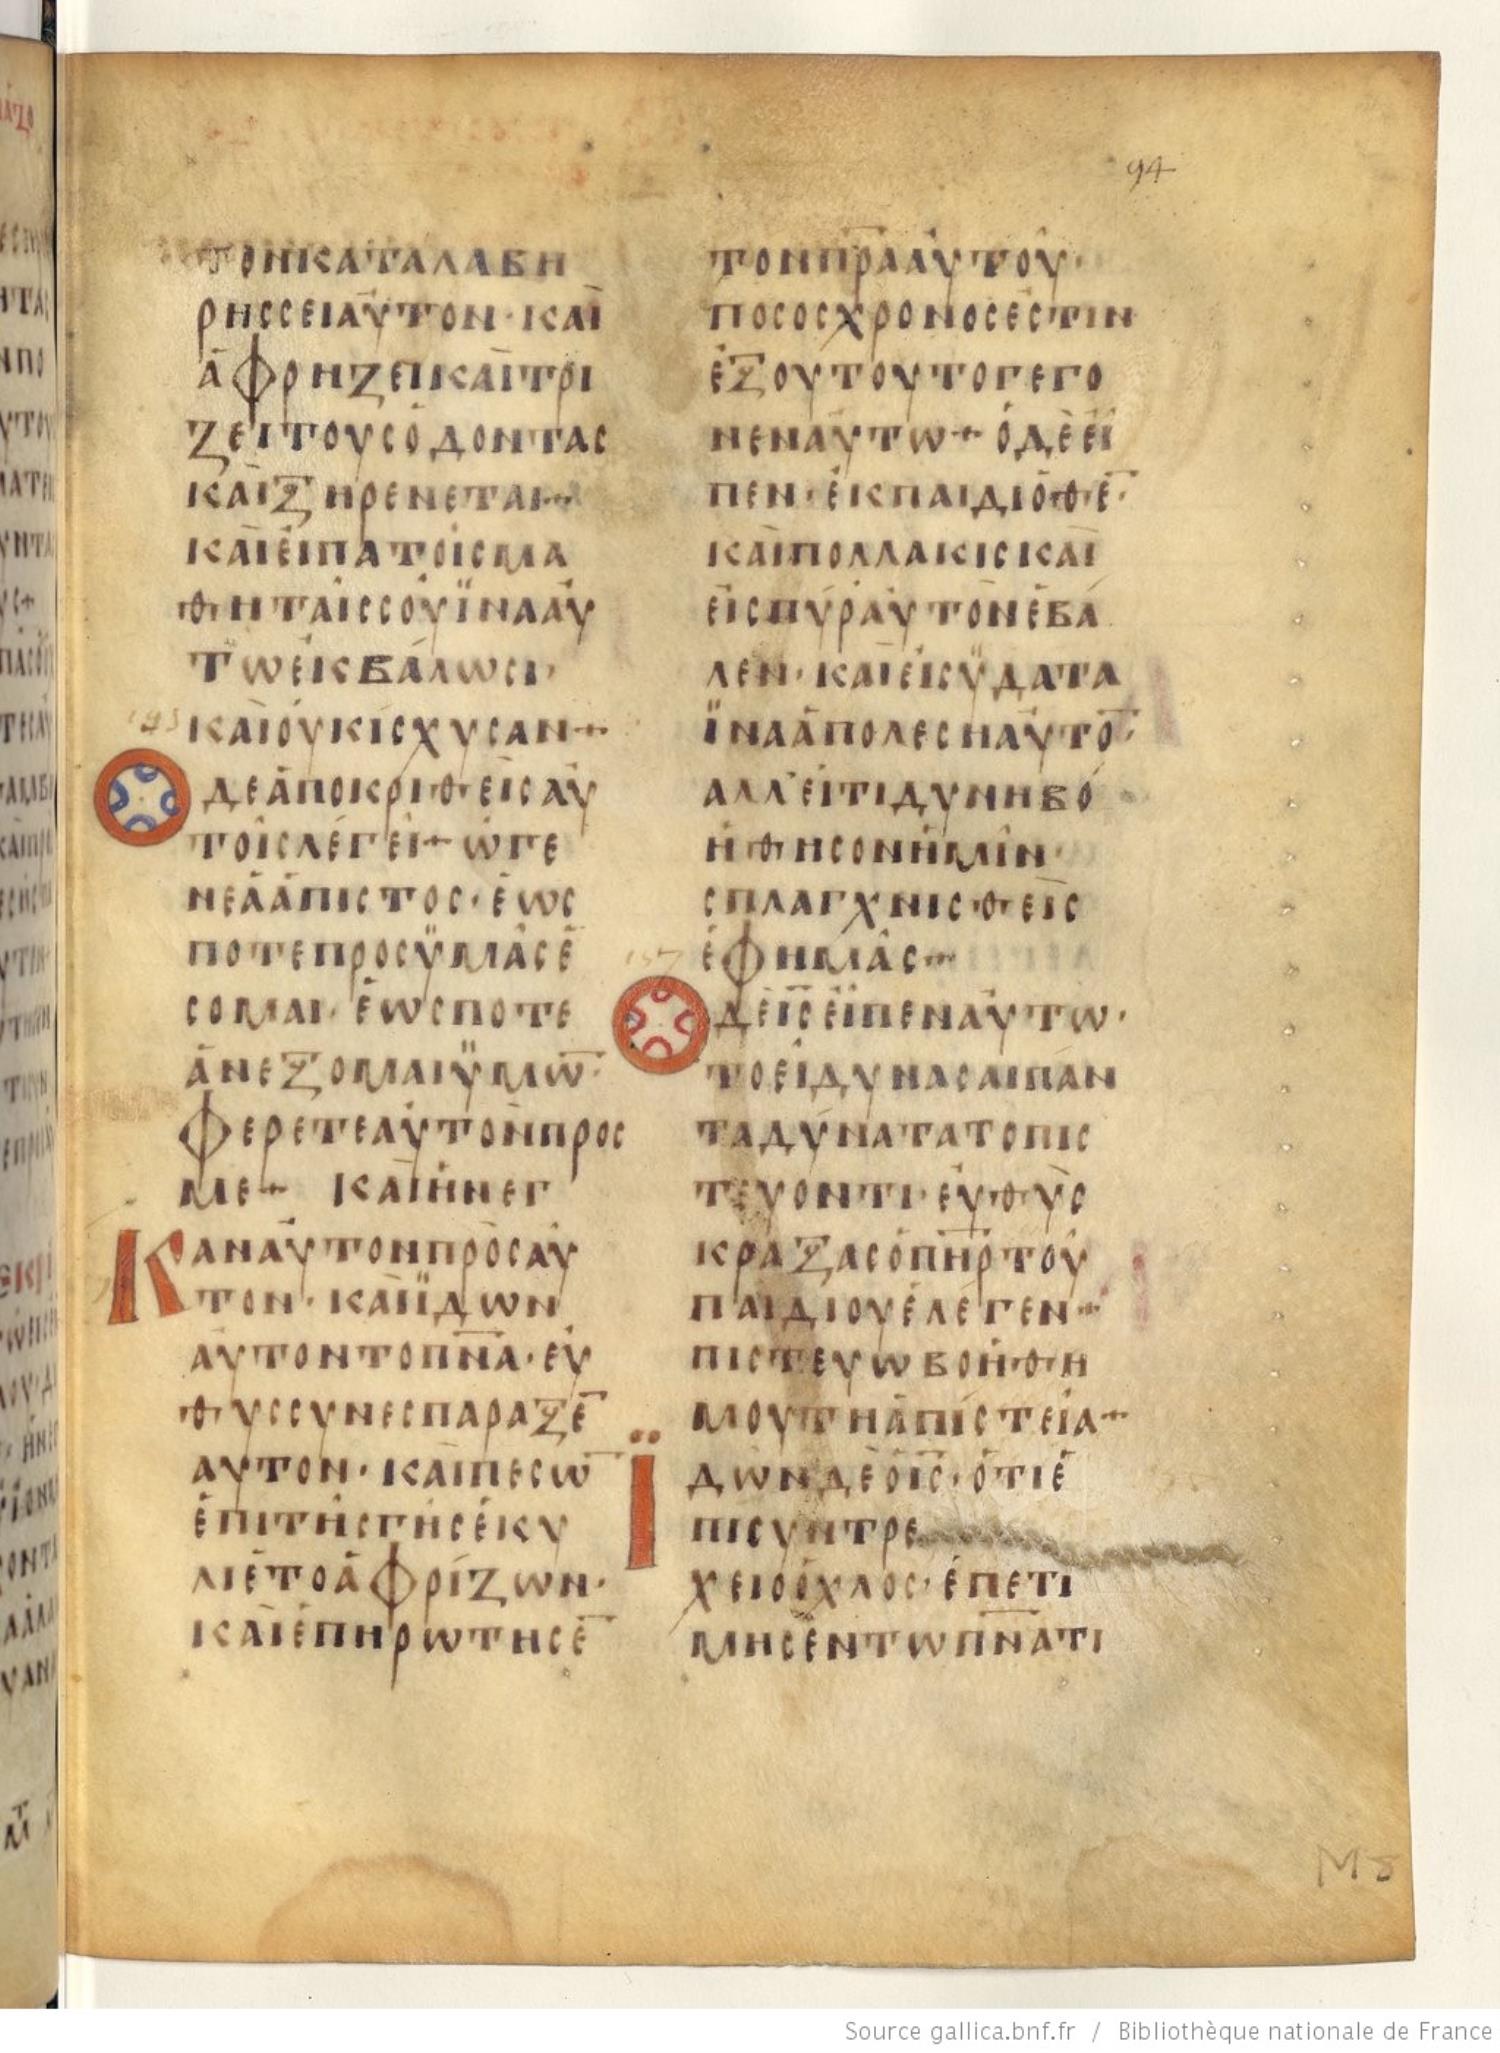 94
τονκαταλαβη
ρησσειαυτον·και
αφρηζεικαιτρι
ζειτουσοδοντας
καιξηρενεται+
καιειπατοισμα
θηταισσουϊνααυ
τωεικβαλωσι·
καιουκισχυσαν+
Οδεαποκριθεισαυ
τοισλεγει+ωγε
νεααπιστος·εως
ποτεπροσϋμασε
σομαι·εωσποτε
ανεξομαιϋμω̅·
φερετεαυτονπρος
με+ καιηνεγ
Καναυτονπροσαυ
τον·καιϊδων
αυτοντοπ̅ν̅α·ευ
θυσσυνεσπαραξε̅
αυτον·καιπεσω̅
επιτησγησεκυ
λιετοαφριζων·
καιεπηρωτησε̅
τονπ̅ρ̅ααυτου·
ποσοσχρονοσεστιν
εξουτουτογεγο
νεναυτω+οδεεϊ
πεν·εκπαιδιοθε̅·
καιπολλακισκαι
εισπυραυτονεβα
λεν·καιεισϋδατα
ϊνααπολεσηαυτο̅·
αλλ'ειτιδυνηβο
ηθησονημιν·
σπλαγχνισθεις
εφημας+
Οδει̅ς̅εϊπεναυτω·
τοειδυνασαιπαν
ταδυνατατοπισ
τευοντι·ευθυς
κραξασοπ̅η̅ρτου
παιδιουελεγεν+
πιστευωβοηθη
μουτηαπιστεια+
Ϊδωνδεοι̅ς̅·οτιε
πισυντρε
χειοοχλος·επετι
μησεντωπ̅ν̅ατι
M 8
Source gallica.bnf.fr / Bibliothèque nationale de France